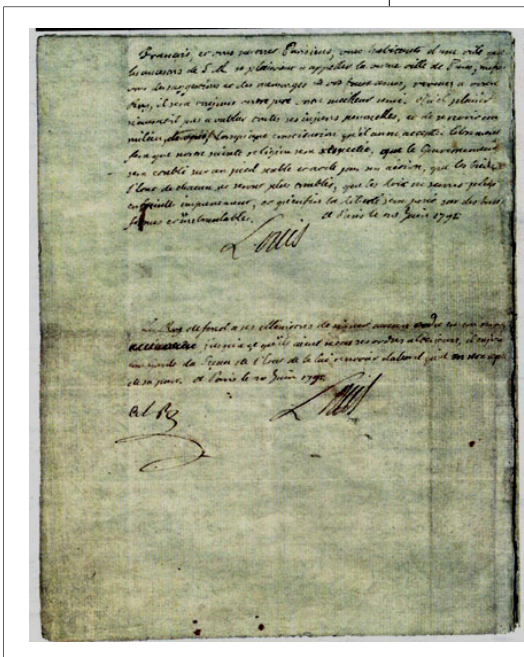 Francais, et vous surtout Parisiens, vous habitants d'une ville que
les ancestres de S. M. se plaisoient a appeller la bonne ville de Paris, mefiez
vous des suggestions et des mensonges de vos faux amis, revenez a votre
Roy, il sera toujours votre pere, votre meilleur ami. quel plaisir
n'aura t'il pas a oublier toutes ses injures personelles, et de se revoir au
milieu de vous, lorsqu'une constitution qu'il aura acceptée librement
fera que notre sainte religion sera respectée, que le Gouvernement
sera etabli sur un pied stable et utile par son action, que les biens
et l'etat de chacun ne seront plus troublés, que les loix ne seront plus
enfreintes impunement, et qu'enfin la liberté sera posée sur des bases
fermes et inebranlables. a Paris le 20 Juin 1791
Louis
Le Roy defend a ses ministres de signer aucun ordre en son nom
jusqu'a ce qu'ils aient recus ses ordres ulterieurs, il enjoint
au garde du Sceau de l'Etat de le lui renvoier d'abord qu'il en sera
de sa part. a Paris le 20 Juin 1791
Louis